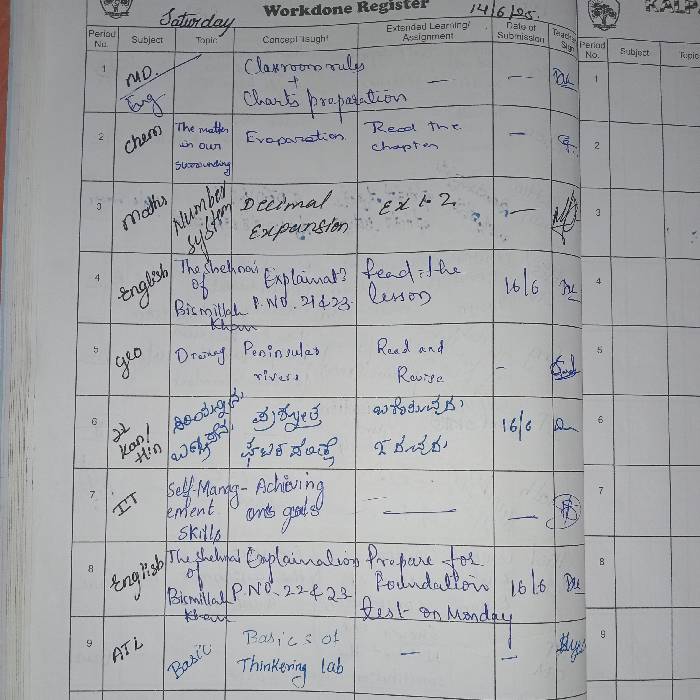 Workdone Register
KALP
Saturday
14/6/25.
Period No.
Subject
Topic
Concept Taught
Extended Learning/ Assignment
Date of Submission
Teacher Sign
Period No.
Subject
Topic
1
MD.
Eng
Classroom rules
+
Charts preparation
—
—
1
2
Chem
The matter
in our
surrounding
Evaporation
Read the
chapter
—
2
3
Maths
Number
system
Decimal
Expansion
Ex 1.2
—
3
4
English
The Shehnai
of
Bismillah
Khan
P.NO. 21 & 23
Read the
lesson
16/6
4
5
Geo
Peninsular
rivers
Read and
Revise
-
5
6
Kan/
Hin
16/6
6
7
IT
Self-Manag-
ement
Skills
Achieving
goals
—
—
7
8
English
The Shehnai
of
Bismillah
Khan
Explaination
P.NO. 22 & 23
Prepare for
Foundation
test on Monday
16/6
8
9
ATL
Basic
Basics of
Thinkering lab
—
—
9